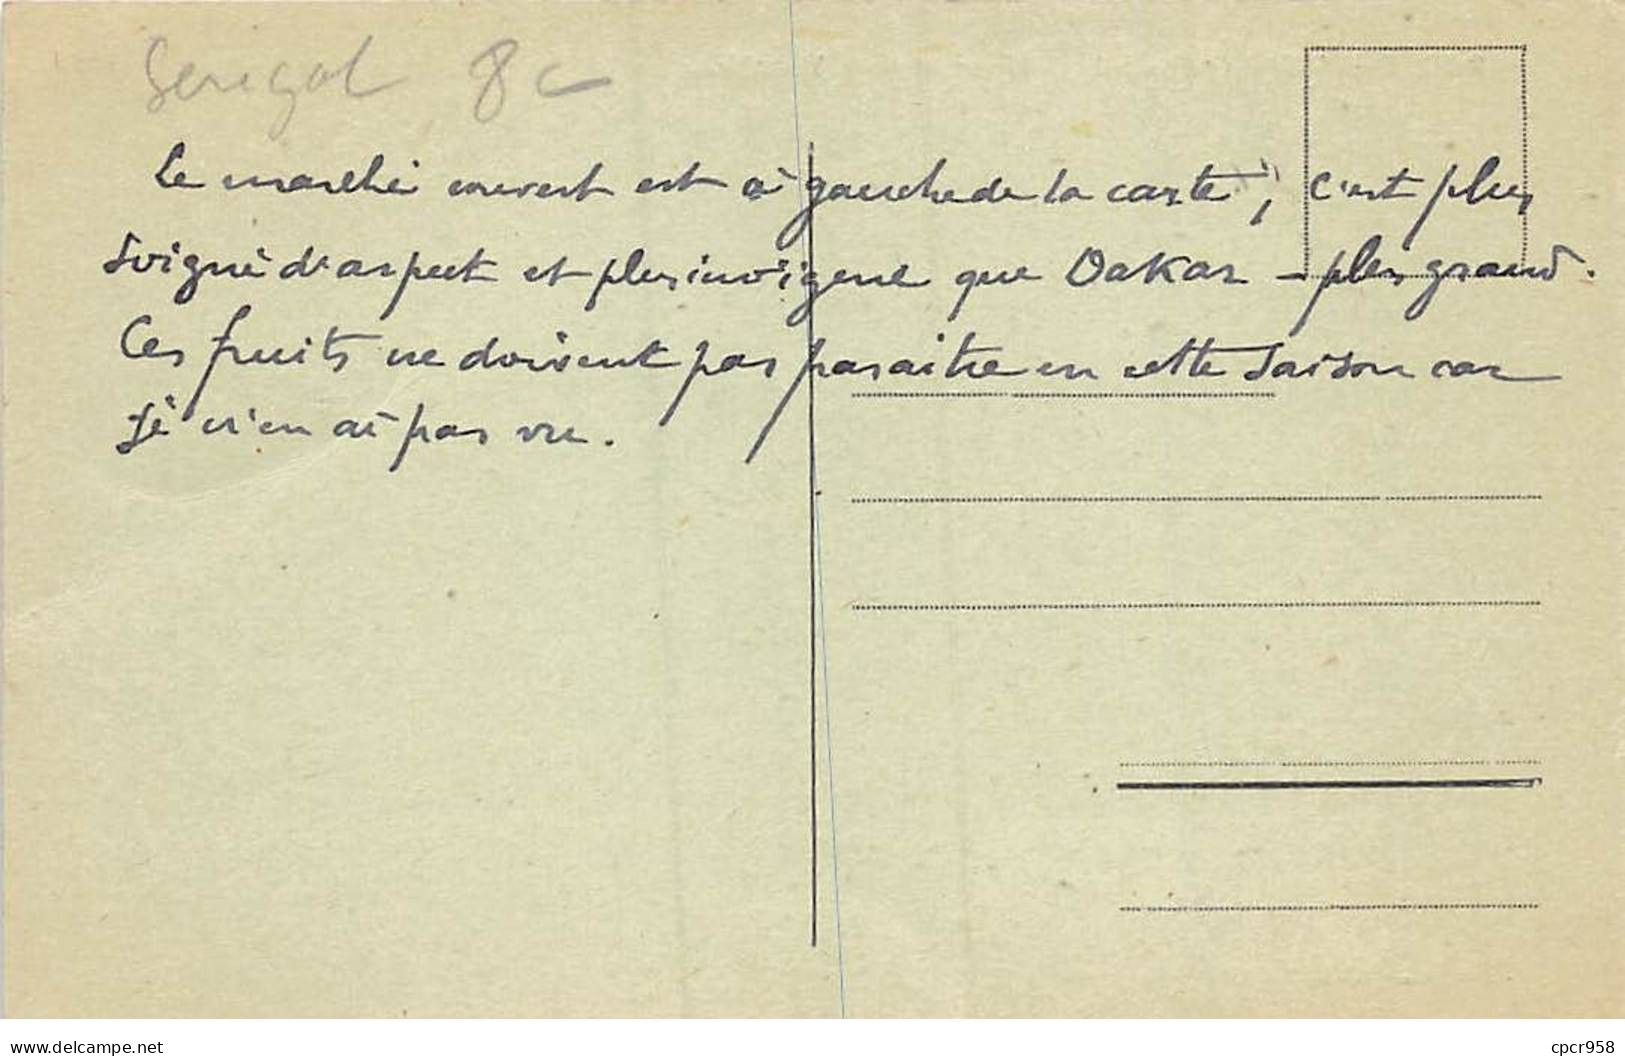 Senegal 8c
Le marché ouvert est à gauche de la carte, c'est plus
soigné d'aspect et plus indigène que Dakar - plus grand.
Ces fruits ne doivent pas paraitre en cette saison car
je n'en ai pas vu.
www.delcampe.net
cpcr958